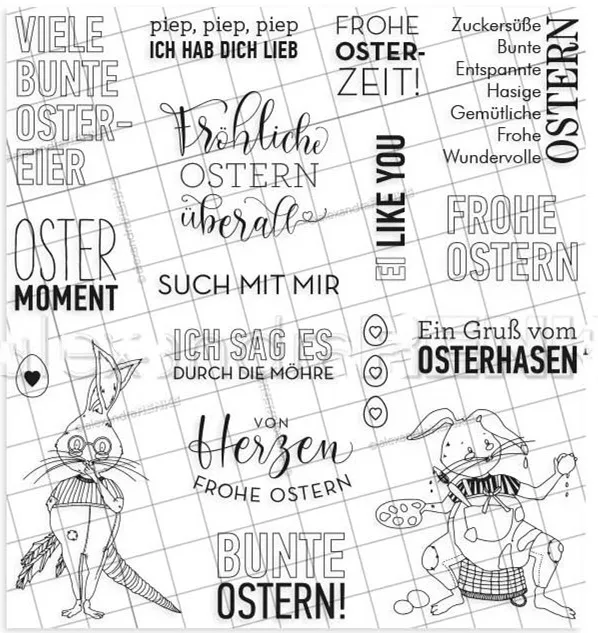 VIELE
BUNTE
OSTER-
EIER
piep, piep, piep
ICH HAB DICH LIEB
FROHE
OSTER-
ZEIT!
Zuckersüße
Bunte
Entspannte
Hasige
Gemütliche
Frohe
Wundervolle
OSTERN
Fröhliche
OSTERN
überall
EI LIKE YOU
FROHE
OSTERN
OSTER
MOMENT
SUCH MIT MIR
ICH SAG ES
DURCH DIE MÖHRE
Ein Gruß vom
OSTERHASEN
VON
Herzen
FROHE OSTERN
BUNTE
OSTERN!